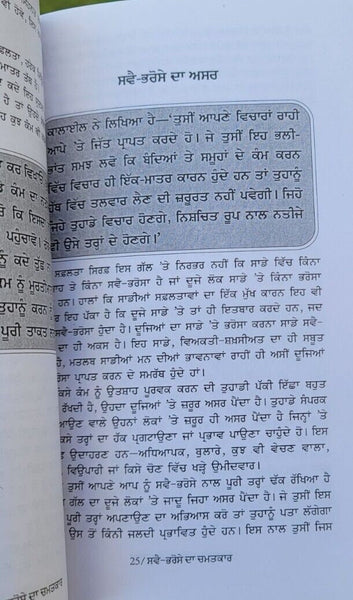 ਸਵੈ-ਭਰੋਸੇ ਦਾ ਅਸਰ
ਕਾਲਾਈਲ ਨੇ ਲਿਖਿਆ ਹੈ—'ਤੁਸੀਂ ਆਪਣੇ ਵਿਚਾਰਾਂ ਰਾਹੀਂ
ਆਪੇ 'ਤੇ ਜਿੱਤ ਪ੍ਰਾਪਤ ਕਰਦੇ ਹੋ। ਜੇ ਤੁਸੀਂ ਇਹ ਭਲੀ-
ਭਾਂਤ ਸਮਝ ਲਵੋ ਕਿ ਬੰਦਿਆਂ ਤੇ ਸਮੂਹਾਂ ਦੇ ਕੰਮ ਕਰਨ
ਵਿੱਚ ਵਿਚਾਰ ਹੀ ਇੱਕ-ਮਾਤਰ ਕਾਰਨ ਹੁੰਦਾ ਹਨ ਤਾਂ ਤੁਹਾਨੂੰ
ਹੱਥ ਵਿੱਚ ਤਲਵਾਰ ਲੈਣ ਦੀ ਜ਼ਰੂਰਤ ਨਹੀਂ ਪਵੇਗੀ। ਜਿਹੋ
ਜਿਹੇ ਤੁਹਾਡੇ ਵਿਚਾਰ ਹੋਣਗੇ, ਨਿਸ਼ਚਿਤ ਰੂਪ ਨਾਲ ਨਤੀਜੇ
ਵੀ ਉਸੇ ਤਰ੍ਹਾਂ ਦੇ ਹੋਣਗੇ।'
ਸਫ਼ਲਤਾ ਸਿਰਫ਼ ਇਸ ਗੱਲ 'ਤੇ ਨਿਰਭਰ ਨਹੀਂ ਕਿ ਸਾਡੇ ਵਿੱਚ ਕਿੰਨਾ
ਸਵੈ-ਭਰੋਸਾ ਹੈ ਜਾਂ ਦੂਜੇ ਲੋਕ ਸਾਡੇ 'ਤੇ ਕਿੰਨਾ ਭਰੋਸਾ
ਹਨ। ਹਾਲਾਂ ਕਿ ਸਾਡੀਆਂ ਸਫ਼ਲਤਾਵਾਂ ਦਾ ਇੱਕ ਮੁੱਖ ਕਾਰਨ ਇਹ ਵੀ
ਹ ਪੱਕਾ ਹੈ ਕਿ ਦੂਜੇ ਸਾਡੇ 'ਤੇ ਤਾਂ ਹੀ ਇਤਬਾਰ ਕਰਦੇ ਹਨ, ਜਦ
ਸਵੈ-ਭਰੋਸਾ ਹੁੰਦਾ ਹੈ। ਦੂਜਿਆਂ ਦਾ ਸਾਡੇ 'ਤੇ ਭਰੋਸਾ ਕਰਨਾ ਸਾਡੇ ਸਵੈ-
ਦਾ ਹੀ ਅਕਸ ਹੈ। ਇਹ ਸਾਡੇ, ਵਿਅਕਤੀ-ਸ਼ਖ਼ਸੀਅਤ ਦਾ ਹੀ ਸਬੂਤ
ਹੈ, ਮਤਲਬ ਸਾਡੀਆਂ ਮਨ ਦੀਆਂ ਭਾਵਨਾਵਾਂ ਰਾਹੀਂ ਹੀ ਅਸੀਂ ਦੂਜਿਆਂ
ਭਰੋਸਾ ਪ੍ਰਾਪਤ ਕਰਨ ਦੇ ਸਮਰੱਥ ਹੁੰਦੇ ਹਾਂ।
ਕਿਸੇ ਕੰਮ ਨੂੰ ਉਤਸ਼ਾਹ ਪੂਰਵਕ ਕਰਨ ਦੀ ਤੁਹਾਡੀ ਪੱਕੀ ਇੱਛਾ ਬਹੁਤ
ਰੱਖਦੀ ਹੈ, ਉਹਦਾ ਦੂਜਿਆਂ 'ਤੇ ਜ਼ਰੂਰ ਅਸਰ ਪੈਂਦਾ ਹੈ। ਤੁਹਾਡੇ ਸੰਪਰਕ
ਆਉਣ ਵਾਲੇ ਉਹਨਾਂ ਲੋਕਾਂ 'ਤੇ ਜ਼ਰੂਰ ਅਸਰ ਪੈਂਦਾ ਹੈ ਜਿਨ੍ਹਾਂ 'ਤੇ
ਕਿਸੇ ਤਰ੍ਹਾਂ ਦਾ ਹੱਕ ਪ੍ਰਗਟਾਉਣਾ ਜਾਂ ਪ੍ਰਭਾਵ ਪਾਉਣਾ ਚਾਹੁੰਦੇ ਹੋ। ਇਸ
ਉਦਾਹਰਣ ਹਨ—ਅਧਿਆਪਕ, ਬੁਲਾਰੇ, ਕੁਝ ਵੀ ਵੇਚਣ ਵਾਲਾ,
ਵਿਉਪਾਰੀ ਜਾਂ ਕਿਸੇ ਚੋਣ ਵਿੱਚ ਖੜ੍ਹੇ ਉਮੀਦਵਾਰ।
ਤੁਸੀਂ ਆਪਣੇ ਆਪ ਨੂੰ ਸਵੈ-ਭਰੋਸੇ ਨਾਲ ਪੂਰੀ ਤਰ੍ਹਾਂ ਢੱਕ ਰੱਖਿਆ ਹੈ
ਗੱਲ ਦਾ ਦੂਜੇ ਲੋਕਾਂ 'ਤੇ ਜਾਦੂ ਜਿਹਾ ਅਸਰ ਪੈਂਦਾ ਹੈ। ਜੇ ਤੁਸੀਂ ਇਸ
ਪੂਰੀ ਤਰ੍ਹਾਂ ਅਪਣਾਉਣ ਦਾ ਅਭਿਆਸ ਕਰੋ ਤਾਂ ਤੁਹਾਨੂੰ ਪਤਾ ਲੱਗੇਗਾ
ਉਸ ਤੋਂ ਕਿੰਨੀ ਜਲਦੀ ਪ੍ਰਭਾਵਿਤ ਹੁੰਦੇ ਹਨ। ਇਸ ਨਾਲ ਤੁਸੀਂ ਜਿਸ
25/ਸਵੈ-ਭਰੋਸੇ ਦਾ ਚਮਤਕਾਰ